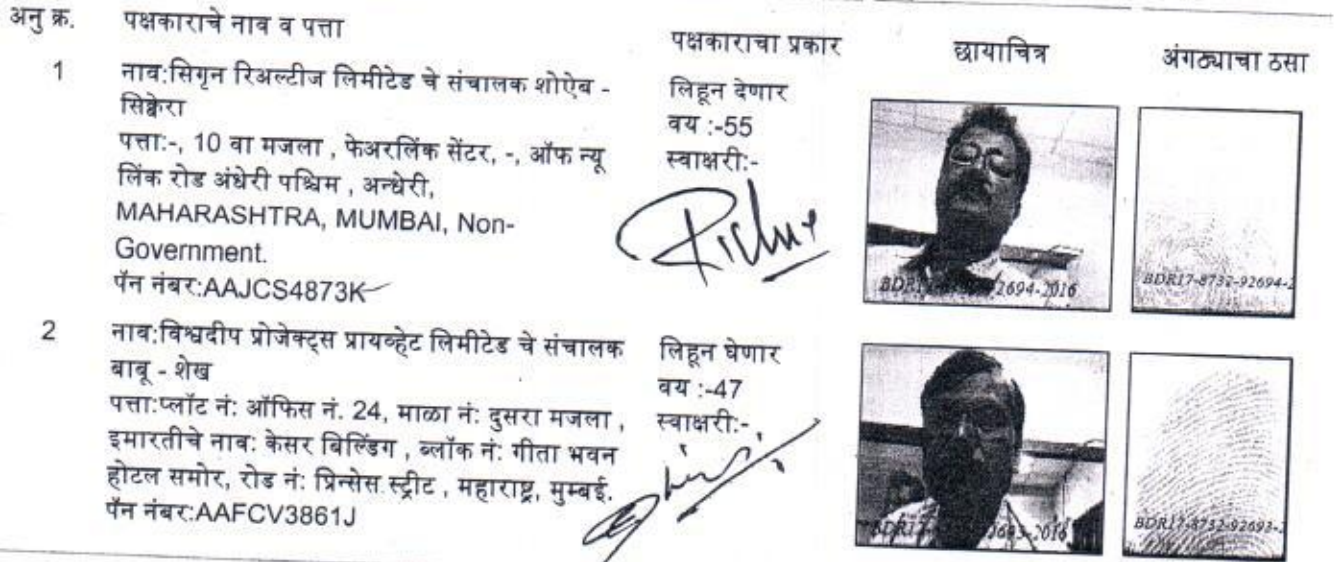 अनु क्र. पक्षकाराचे नाव व पत्ता पक्षकाराचा प्रकार छायाचित्र अंगठ्याचा ठसा
1 नाव:सिगृन रिअल्टीज लिमीटेड चे संचालक शोऐब -
सिक्वेरा
पत्ता:-, 10 वा मजला , फेअरलिंक सेंटर, -, ऑफ न्यू
लिंक रोड अंधेरी पश्चिम , अन्धेरी,
MAHARASHTRA, MUMBAI, Non-
Government.
पॅन नंबर:AAJCS4873K
लिहून देणार
वय :-55
स्वाक्षरी:-
2694-2016
BDR17-8732-92694-2
2 नाव:विश्वदीप प्रोजेक्ट्स प्रायव्हेट लिमीटेड चे संचालक
बाबू - शेख
पत्ता:प्लॉट नं: ऑफिस नं. 24, माळा नं: दुसरा मजला ,
इमारतीचे नाव: केसर बिल्डिंग , ब्लॉक नं: गीता भवन
होटल समोर, रोड नं: प्रिन्सेस स्ट्रीट , महाराष्ट्र, मुम्बई.
पॅन नंबर:AAFCV3861J
लिहून घेणार
वय :-47
स्वाक्षरी:-
BDR17-8732-92693-2